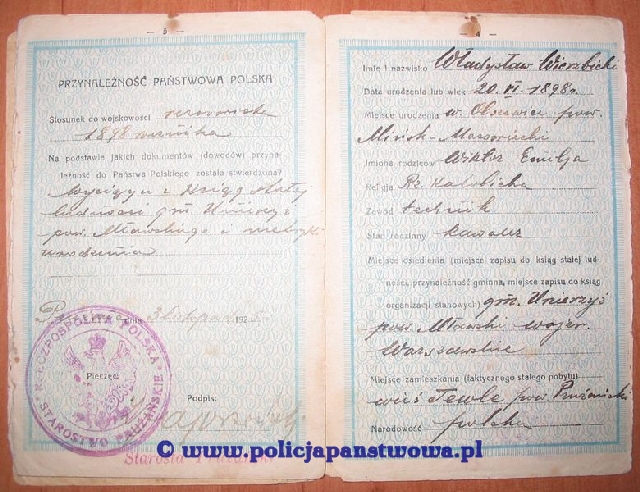 PRZYNALEŻNOŚĆ PAŃSTWOWA POLSKA
Stosunek do wojskowości rezerwista
1898 rocznika
Na podstawie jakich dokumentów (dowodów) przyna-
leżność do Państwa Polskiego została stwierdzona?
Wyciągu z Ksiąg Stałej
ludności gm. Unierzyż
pow. Mławskiego i metryki
urodzenia
dnia 3 listopada 192
Pieczęć
Podpis:
RZECZPOSPOLITA POLSKA
STAROSTWO PRUŻAŃSKIE
Starosta
Imię i nazwisko Władysław Wierzbicki
Data urodzenia lub wiek 20 VI 1898 r.
Miejsce urodzenia pow.
Mińsk-Mazowiecki
Imiona rodziców Wiktor Emilja
Religja Rz. Katolicka
Zawód technik
Stan rodzinny kawaler
Miejsce osiedlenia (miejsce zapisu do ksiąg stałej lud-
ności, przynależność gminna, miejsce zapisu do ksiąg
organizacji stanowych) gm. Unierzyż
pow. Mławski wojew.
Warszawskie
Miejsce zamieszkania (faktycznego stałego pobytu)
wieś Tewle pow. Prużański
Narodowość polska
© www.policjapanstwowa.pl